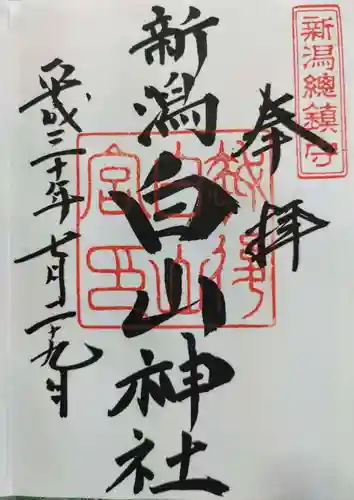 新潟總鎮守
奉拝
新潟白山神社
平成三十年七月二十九日